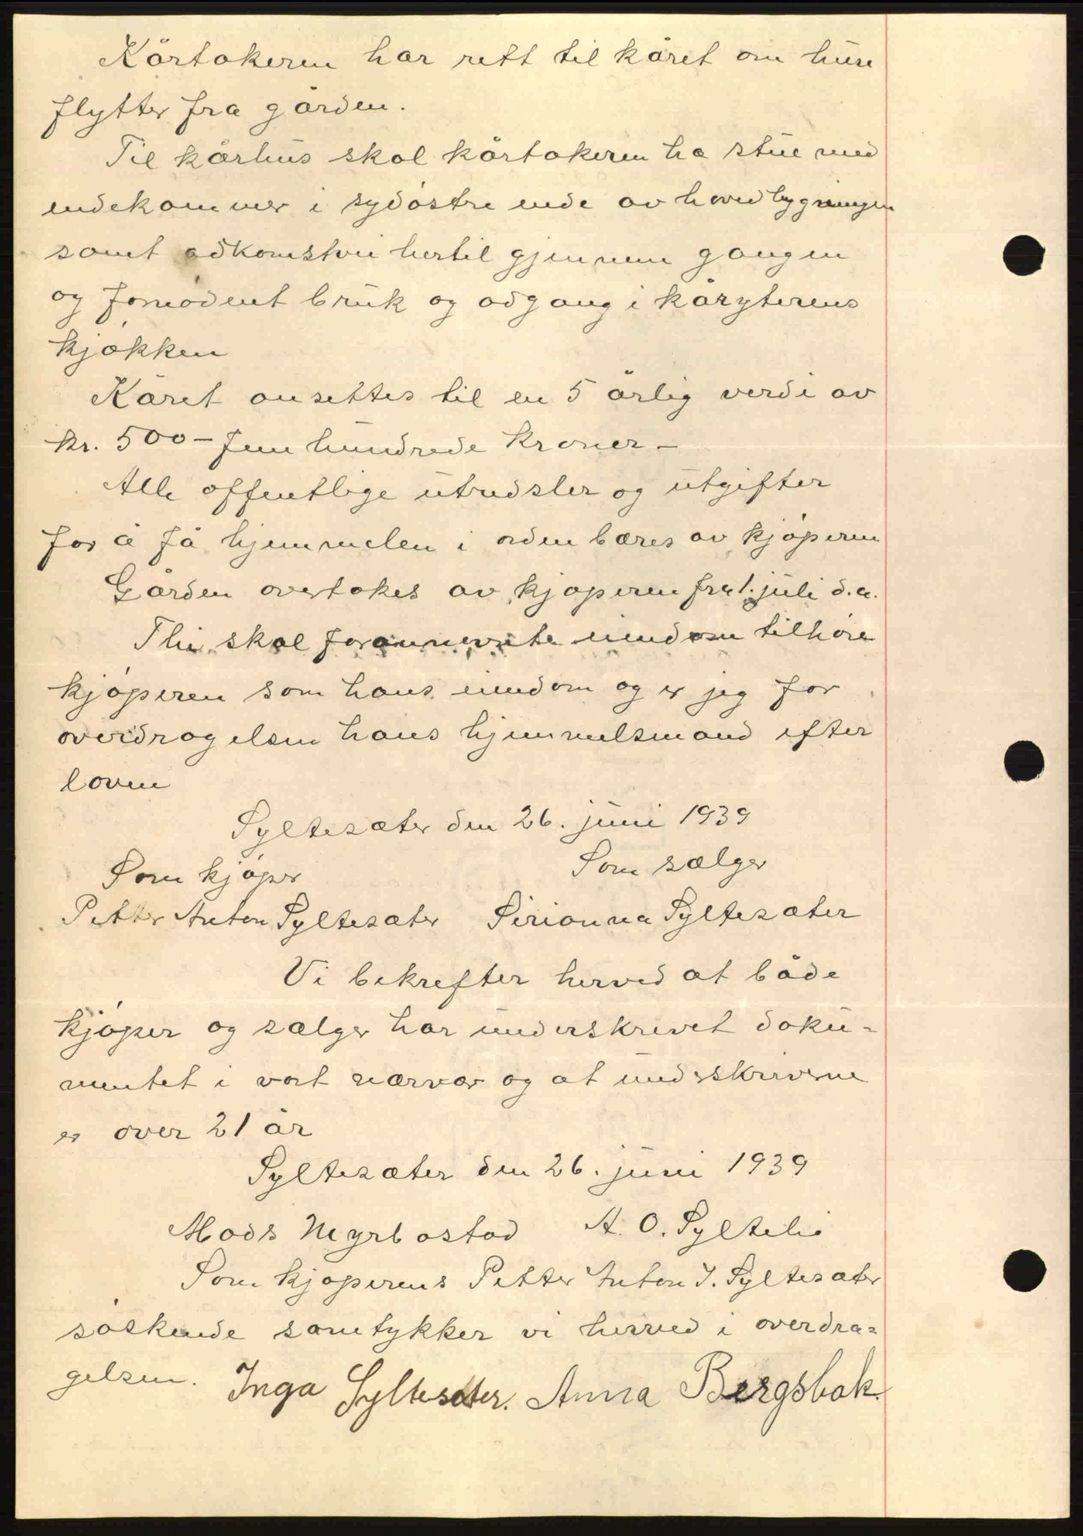 Kårtakeren har rett til kåret om hun
flytter fra gården.
Til kårhus skal kårtakeren ha stue med
endekammer i sydöstre ende av hovedbygningen
samt adkomstvei hertil gjennem gangen
og fornödent bruk og adgang i kåryterens
kjökken
Kåret ansettes til en 5 årlig verdi av
kr. 500 – fem hundrede kroner –
Alle offentlige utredsler og utgifter
for å få hjemmelen i orden bæres av kjöperen
Gården overtakes av kjöperen fra 1. juli d.a.
Thi skal forannevnte eiendom tilhöre
kjöperen som hans eiendom og er jeg for
overdragelsen hans hjemmelsmand efter
loven
Syltesæter den 26. juni 1939
Som kjöper Som sælger
Petter Anton Syltesæter Sirianna Syltesæter
Vi bekrefter herved at både
kjöper og sælger har underskrevet doku=
mentet i vort nærvær og at underskriverne
er over 21 år
Syltesæter den 26. juni 1939
Mads Myrbostad A. O. Syltelid
Som kjöperens Petter Anton J. Syltesæter
söskende samtykker vi herved i overdra=
gelsen. Inga Syltesæter. Anna Bergsbak.